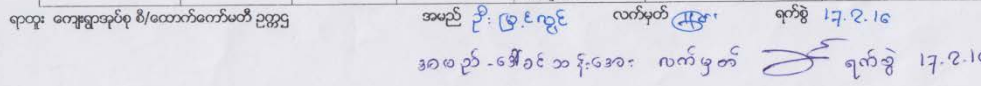 ရာထူး ကျေးရွာအုပ်စု စီ/ထောက်ကော်မတီ ဥက္ကဋ္ဌ အမည် ဦးမြင့်လွင် လက်မှတ် ရက်စွဲ 17.2.16
အမည် - ဒေါ်ခင်သန်းအေး လက်မှတ် ရက်စွဲ 17.2.1